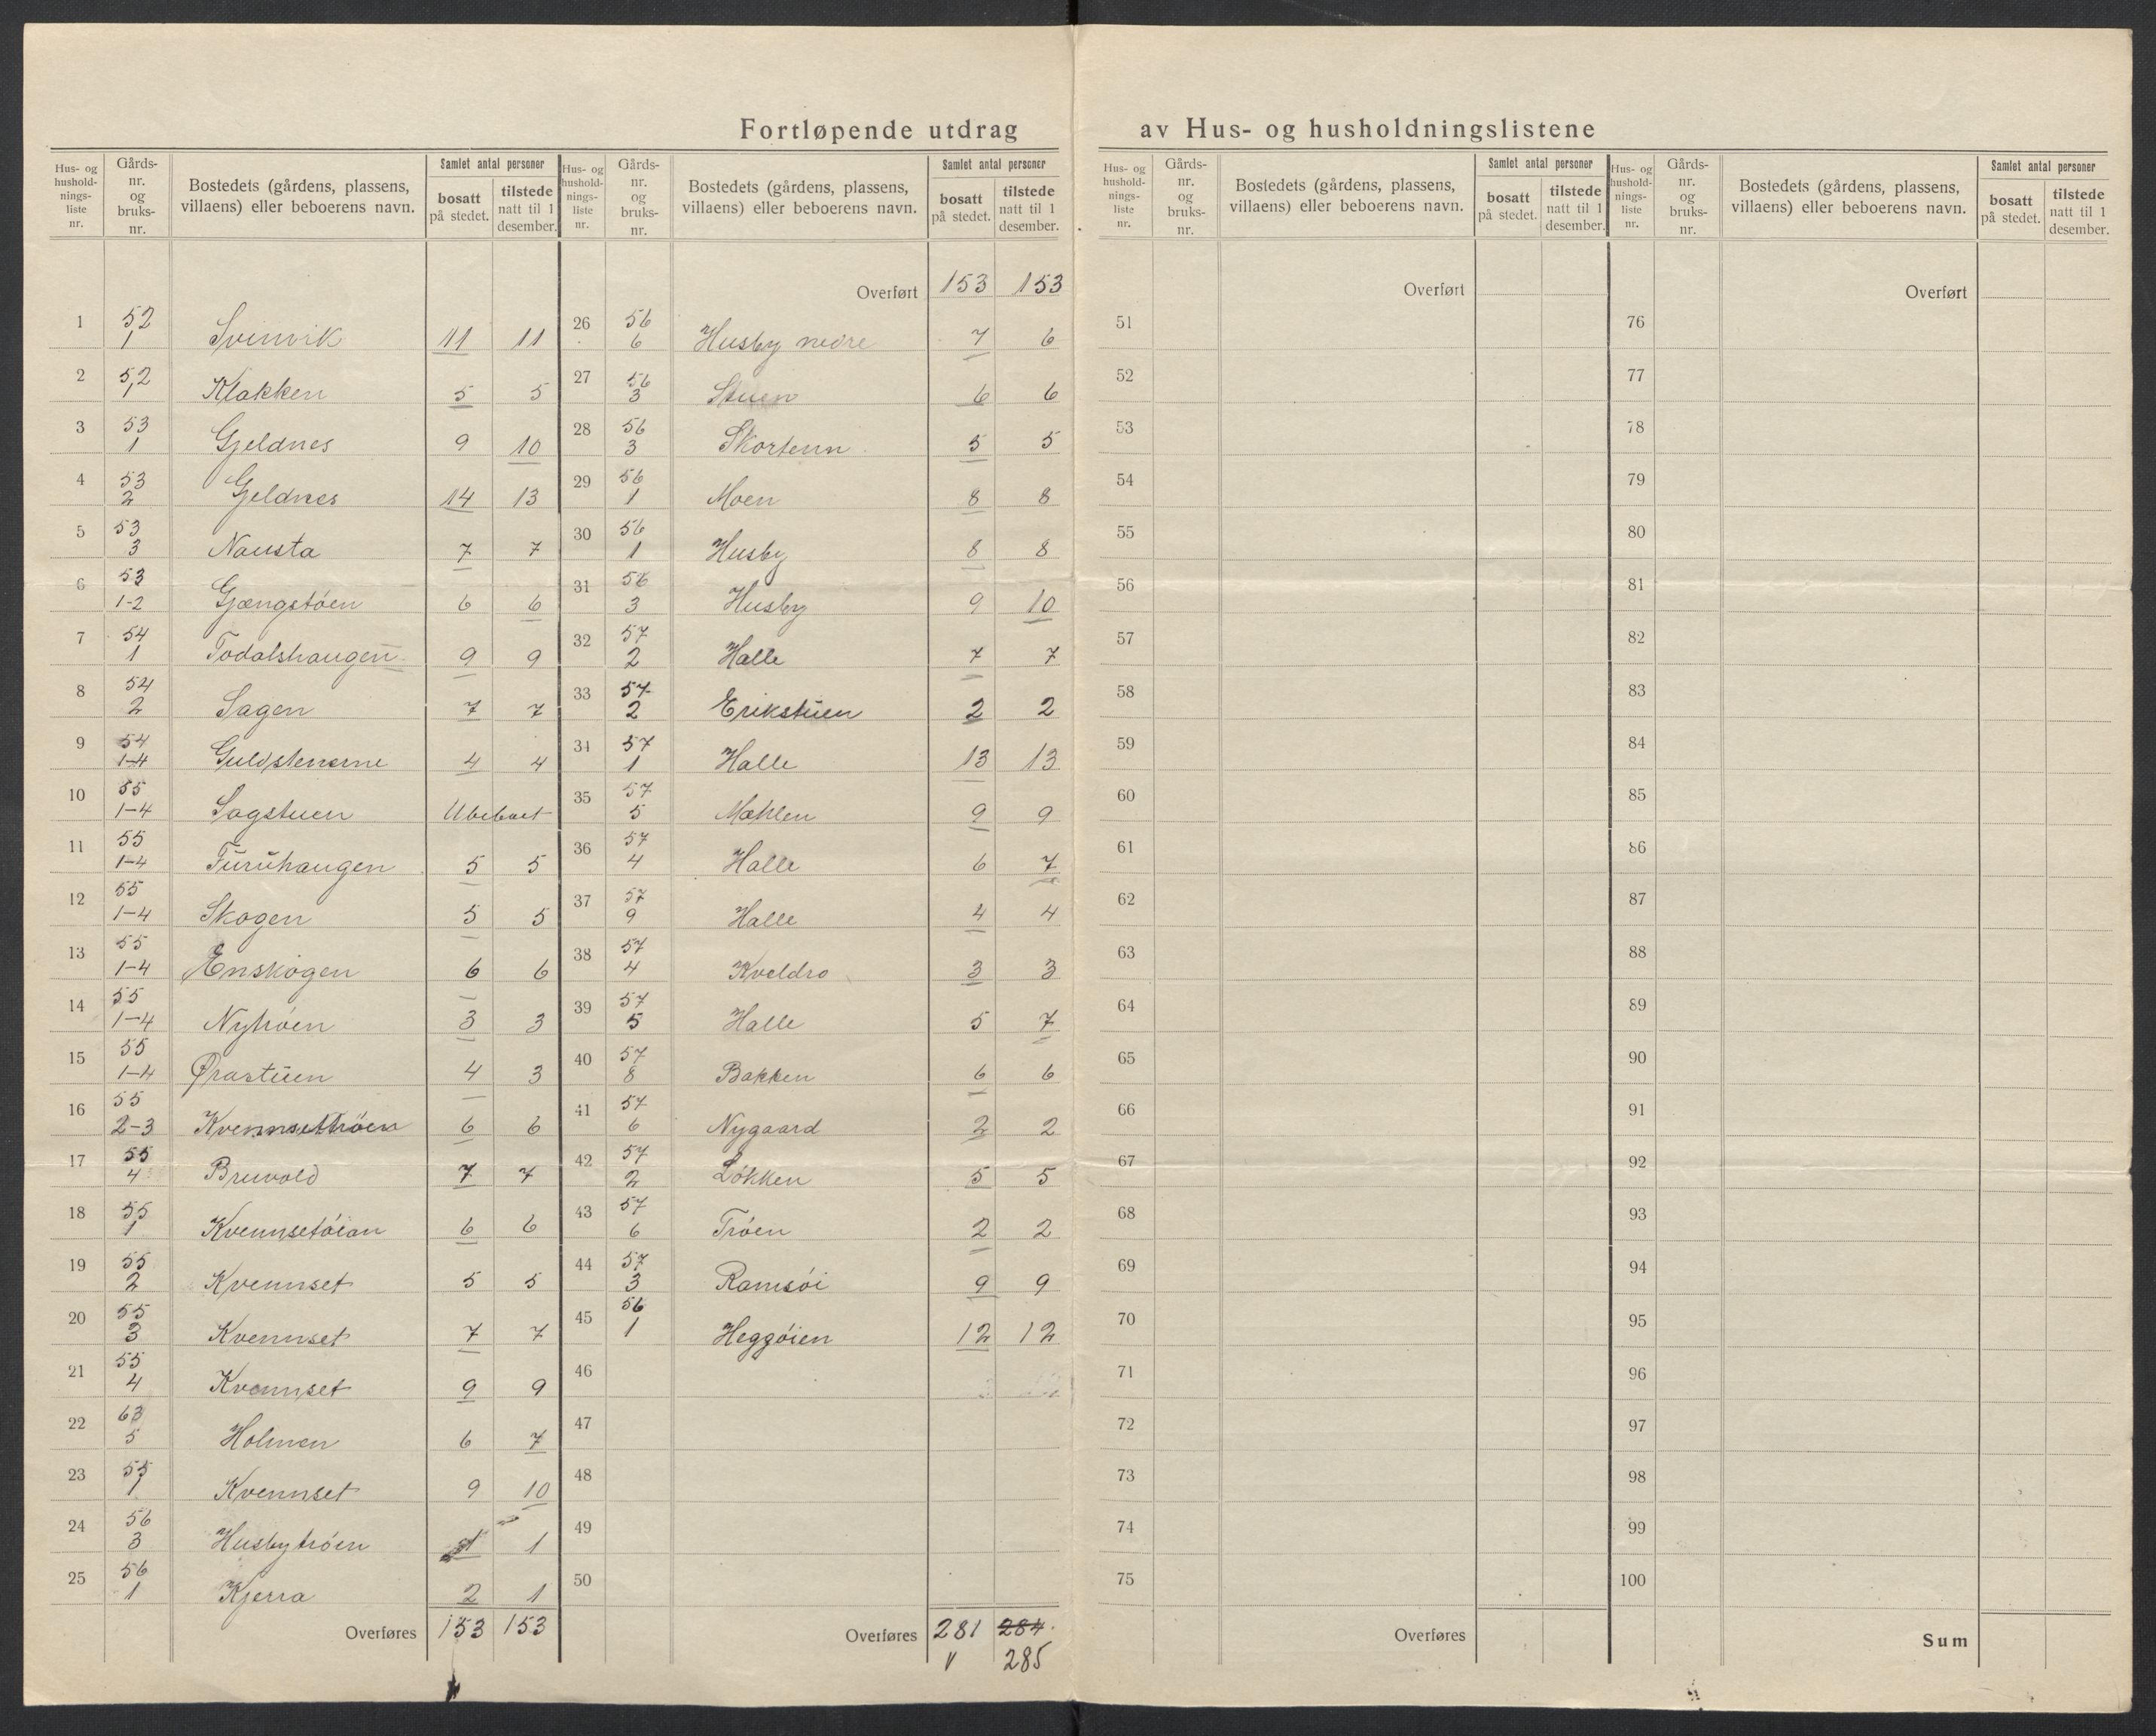 Fortløpende utdrag av Hus- og husholdningslistene
Hus- og hushold-nings-liste nr. | Gårds-nr. og bruks-nr. | Bostedets (gårdens, plassens, villaens) eller beboerens navn. | Samlet antal personer | bosatt på stedet. | tilstede natt til 1 desember.
1 | 52 1 | Svinvik | 11 | 11
2 | 52 1 | Klakken | 5 | 5
3 | 53 1 | Gjeldnes | 9 | 10
4 | 53 2 | Gjeldnes | 14 | 13
5 | 53 3 | Nausta | 7 | 7
6 | 53 1-2 | Gjengstøen | 6 | 6
7 | 54 1 | Todalshaugen | 9 | 9
8 | 54 2 | Sagen | 7 | 7
9 | 54 1-4 | Guldstenerne | 4 | 4
10 | 55 1-4 | Sagstuen | Ubeboet
11 | 55 1-4 | Furuhaugen | 5 | 5
12 | 55 1-4 | Skogen | 5 | 5
13 | 55 1-4 | Enskogen | 6 | 6
14 | 55 1-4 | Nytrøen | 3 | 3
15 | 55 1-4 | Ørastuen | 4 | 3
16 | 55 2-3 | Kvennsettrøen | 6 | 6
17 | 55 4 | Bruvold | 7 | 7
18 | 55 1 | Kvennsetøian | 6 | 6
19 | 55 2 | Kvennset | 5 | 5
20 | 55 3 | Kvennset | 7 | 7
21 | 55 4 | Kvennset | 9 | 9
22 | 63 5 | Holmen | 6 | 7
23 | 55 1 | Kvennset | 9 | 10
24 | 56 3 | Husbytrøen | 1 | 1
25 | 56 1 | Kjerra | 2 | 1
Overføres | 153 | 153
Hus- og hushold-nings-liste nr. | Gårds-nr. og bruks-nr. | Bostedets (gårdens, plassens, villaens) eller beboerens navn. | Samlet antal personer | bosatt på stedet. | tilstede natt til 1 desember.
Overført | 153 | 153
26 | 56 6 | Husby nedre | 7 | 6
27 | 56 3 | Stuen | 6 | 6
28 | 56 3 | Skortenn | 5 | 5
29 | 56 1 | Moen | 8 | 8
30 | 56 1 | Husby | 8 | 8
31 | 56 3 | Husby | 9 | 10
32 | 57 2 | Halle | 7 | 7
33 | 57 2 | Erikstuen | 2 | 2
34 | 57 1 | Halle | 13 | 13
35 | 57 5 | Mæhlen | 9 | 9
36 | 57 4 | Halle | 6 | 7
37 | 57 9 | Halle | 4 | 4
38 | 57 4 | Kveldro | 3 | 3
39 | 57 5 | Halle | 5 | 7
40 | 57 8 | Bakken | 6 | 6
41 | 57 6 | Nygaard | 2 | 2
42 | 57 2 | Løkken | 5 | 5
43 | 57 6 | Trøen | 2 | 2
44 | 57 3 | Ramsøi | 9 | 9
45 | 56 1 | Heggøien | 12 | 12
46
47
48
49
50
Overføres | 281 | 284
v 285
Hus- og hushold-nings-liste nr. | Gårds-nr. og bruks-nr. | Bostedets (gårdens, plassens, villaens) eller beboerens navn. | Samlet antal personer | bosatt på stedet. | tilstede natt til 1 desember.
Overført
51
52
53
54
55
56
57
58
59
60
61
62
63
64
65
66
67
68
69
70
71
72
73
74
75
Overføres
Hus- og hushold-nings-liste nr. | Gårds-nr. og bruks-nr. | Bostedets (gårdens, plassens, villaens) eller beboerens navn. | Samlet antal personer | bosatt på stedet. | tilstede natt til 1 desember.
Overført
76
77
78
79
80
81
82
83
84
85
86
87
88
89
90
91
92
93
94
95
96
97
98
99
100
Sum